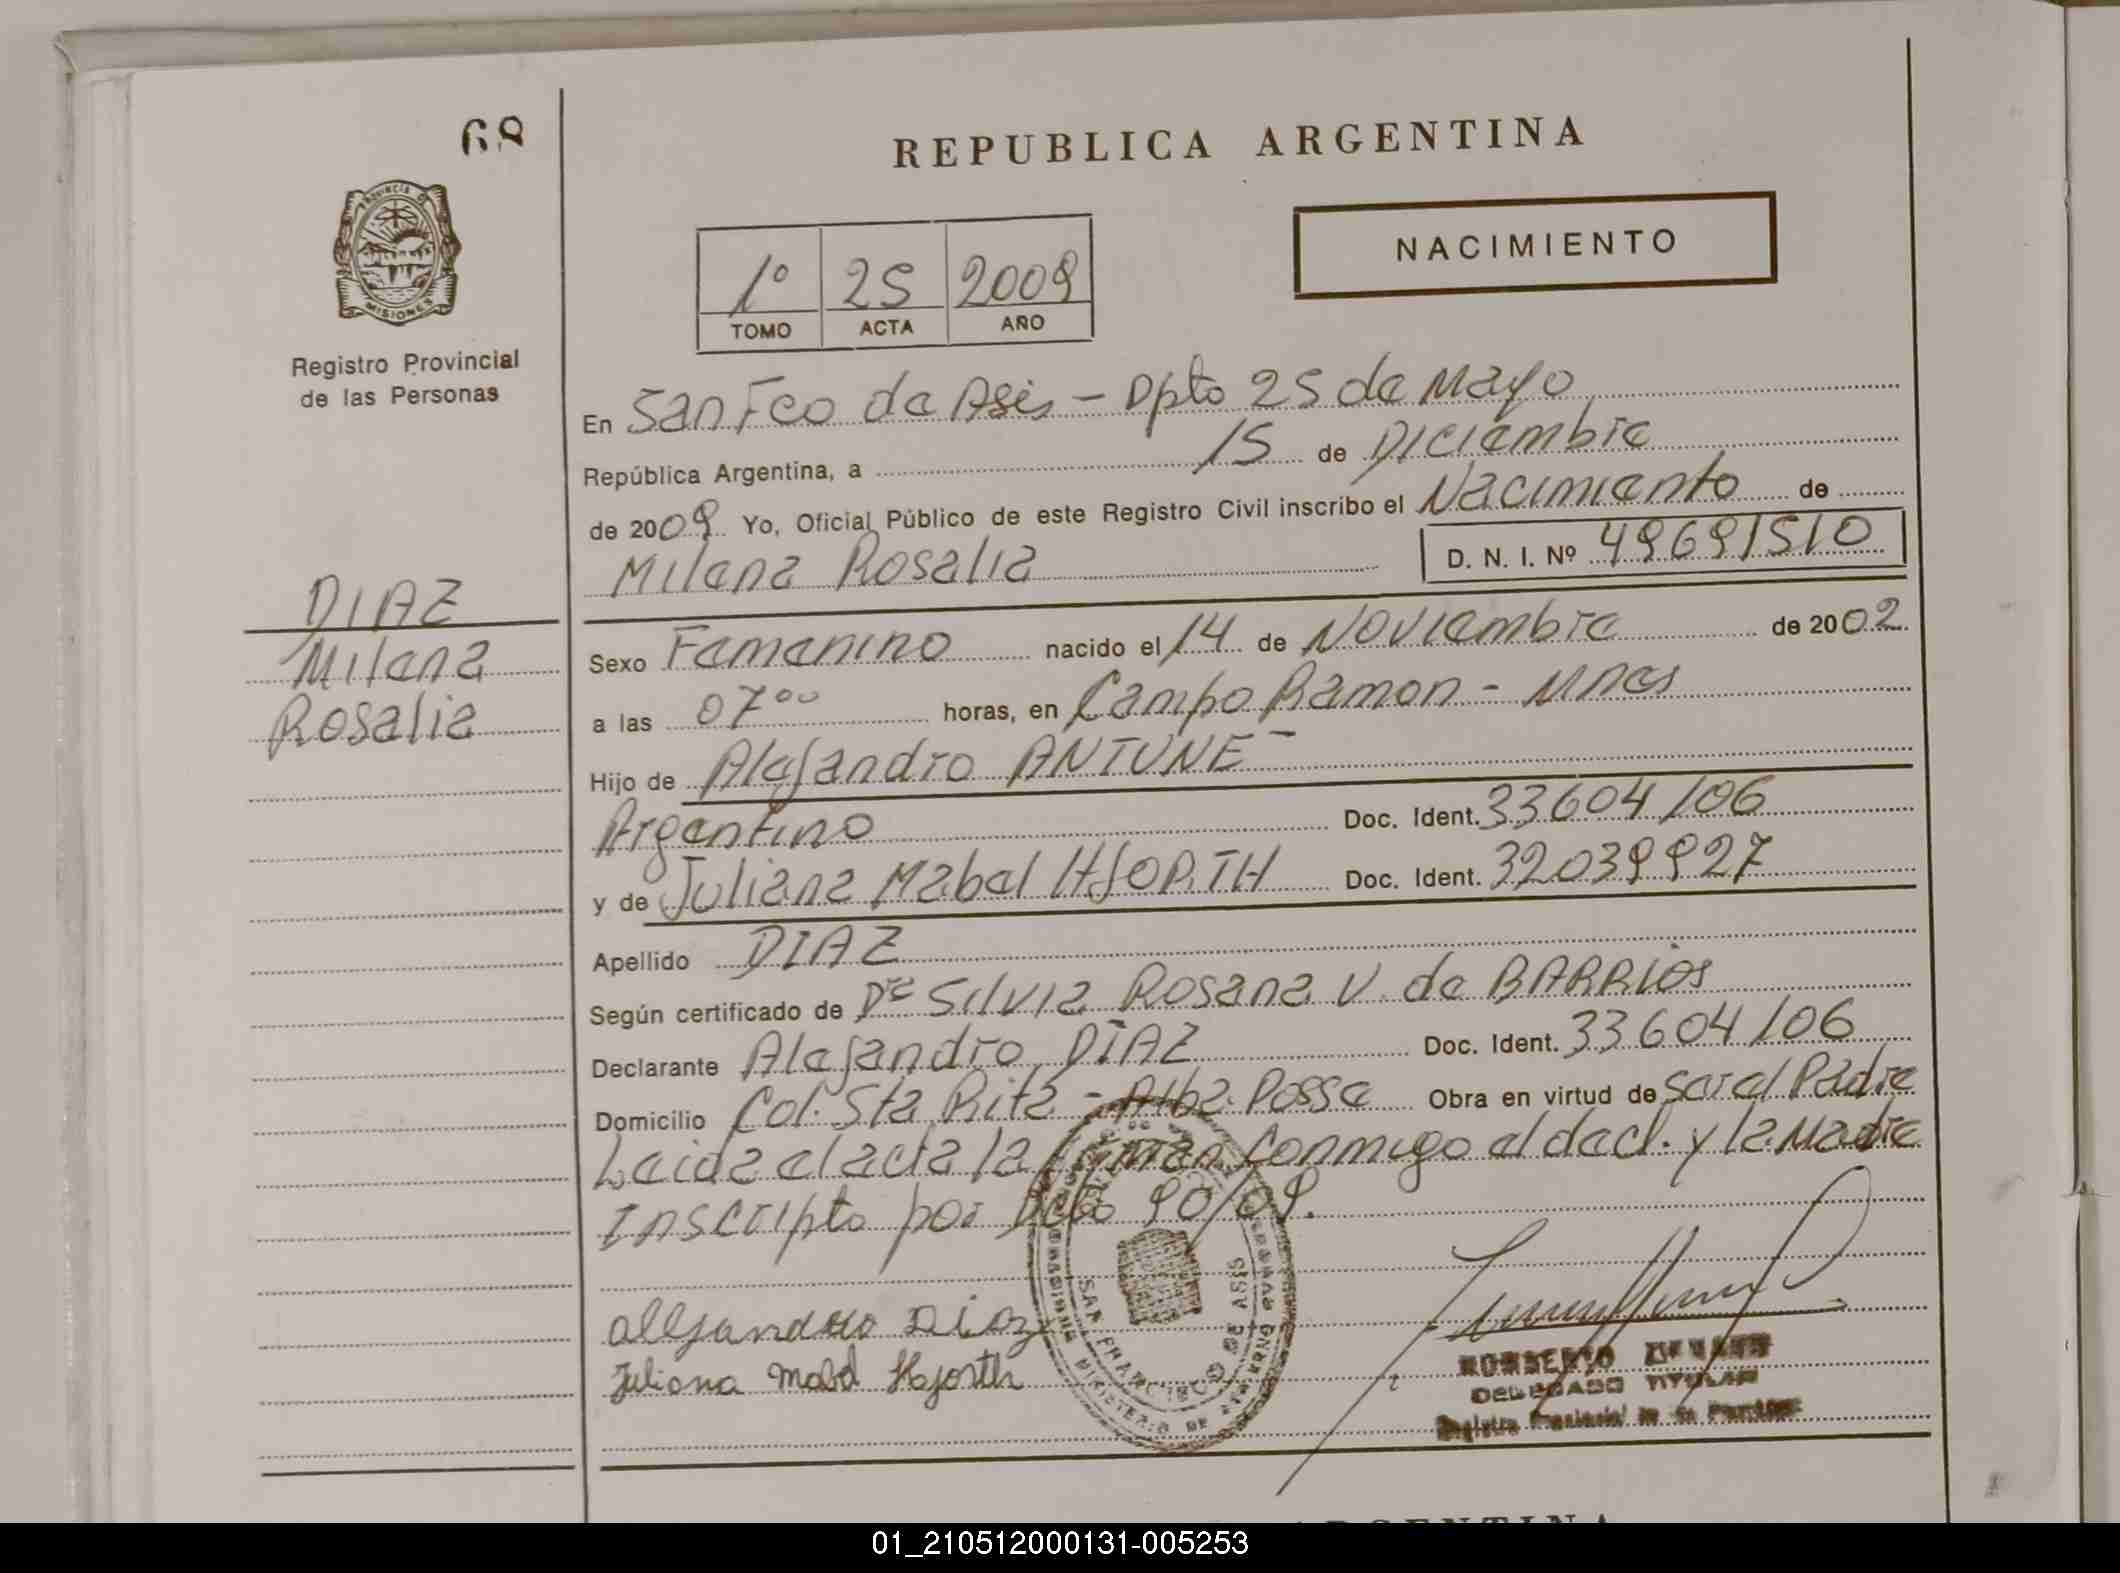 68
REPUBLICA ARGENTINA
NACIMIENTO
1º 25 2009
TOMO ACTA AÑO
PROVINCIA DE
MISIONES
Registro Provincial
de las Personas
DIAZ
Milena
Rosalia
En San Fco de Asis - Dpto 25 de Mayo
República Argentina, a 15 de Diciembre
de 2009 Yo, Oficial Público de este Registro Civil inscribo el Nacimiento de
Milena Rosalia D. N. I. Nº 49691510
Sexo Femenino nacido el 14 de Noviembre de 2002
a las 07 00 horas, en Campo Ramon - Mnes
Hijo de Alejandro ANTUNE -
Argentino Doc. Ident. 33604106
y de Juliana Mabel HJORTH Doc. Ident. 32039927
Apellido DIAZ
Según certificado de Dra Silvia Rosana V. de BARRIOS
Declarante Alejandro DIAZ Doc. Ident. 33604106
Domicilio Col. Sta Rita - Alba Posse Obra en virtud de ser el Padre
Leida el acta la firman conmigo el decl. y la Madre
Inscripto por Dcto 90/09.
Alejandro Diaz
Juliana Mabel Hjorth
SAN FRANCISCO DE ASIS
MINISTERIO DE
DELEGADO TITULAR
Registro Provincial de las Personas
ARGENTINA
01_210512000131-005253